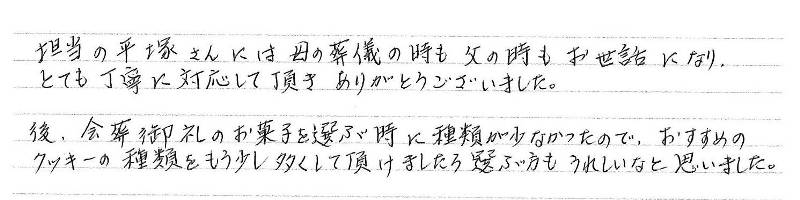 担当の平塚さんには母の葬儀の時も父の時もお世話になり、
とても丁寧に対応して頂きありがとうございました。
後、会葬御礼のお菓子を選ぶ時に種類が少なかったので、おすすめの
クッキーの種類をもう少し多くして頂けましたら選ぶ方もうれしいなと思いました。